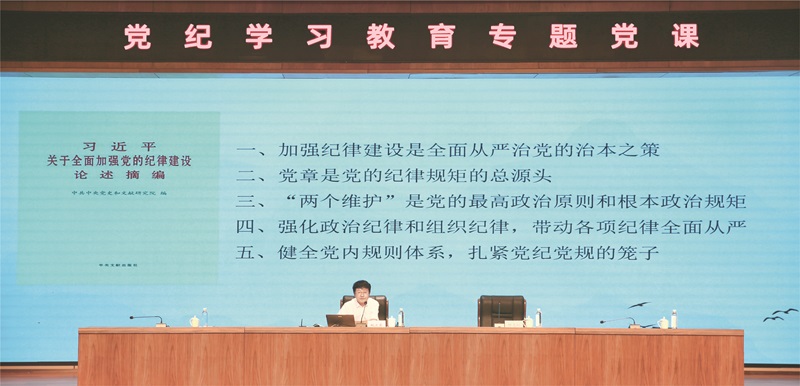 党纪学习教育专题党课
习近平
关于全面加强党的纪律建设
论述摘编
中共中央党史和文献研究院 编
中央文献出版社
一、加强纪律建设是全面从严治党的治本之策
二、党章是党的纪律规矩的总源头
三、“两个维护”是党的最高政治原则和根本政治规矩
四、强化政治纪律和组织纪律，带动各项纪律全面从严
五、健全党内规则体系，扎紧党纪党规的笼子